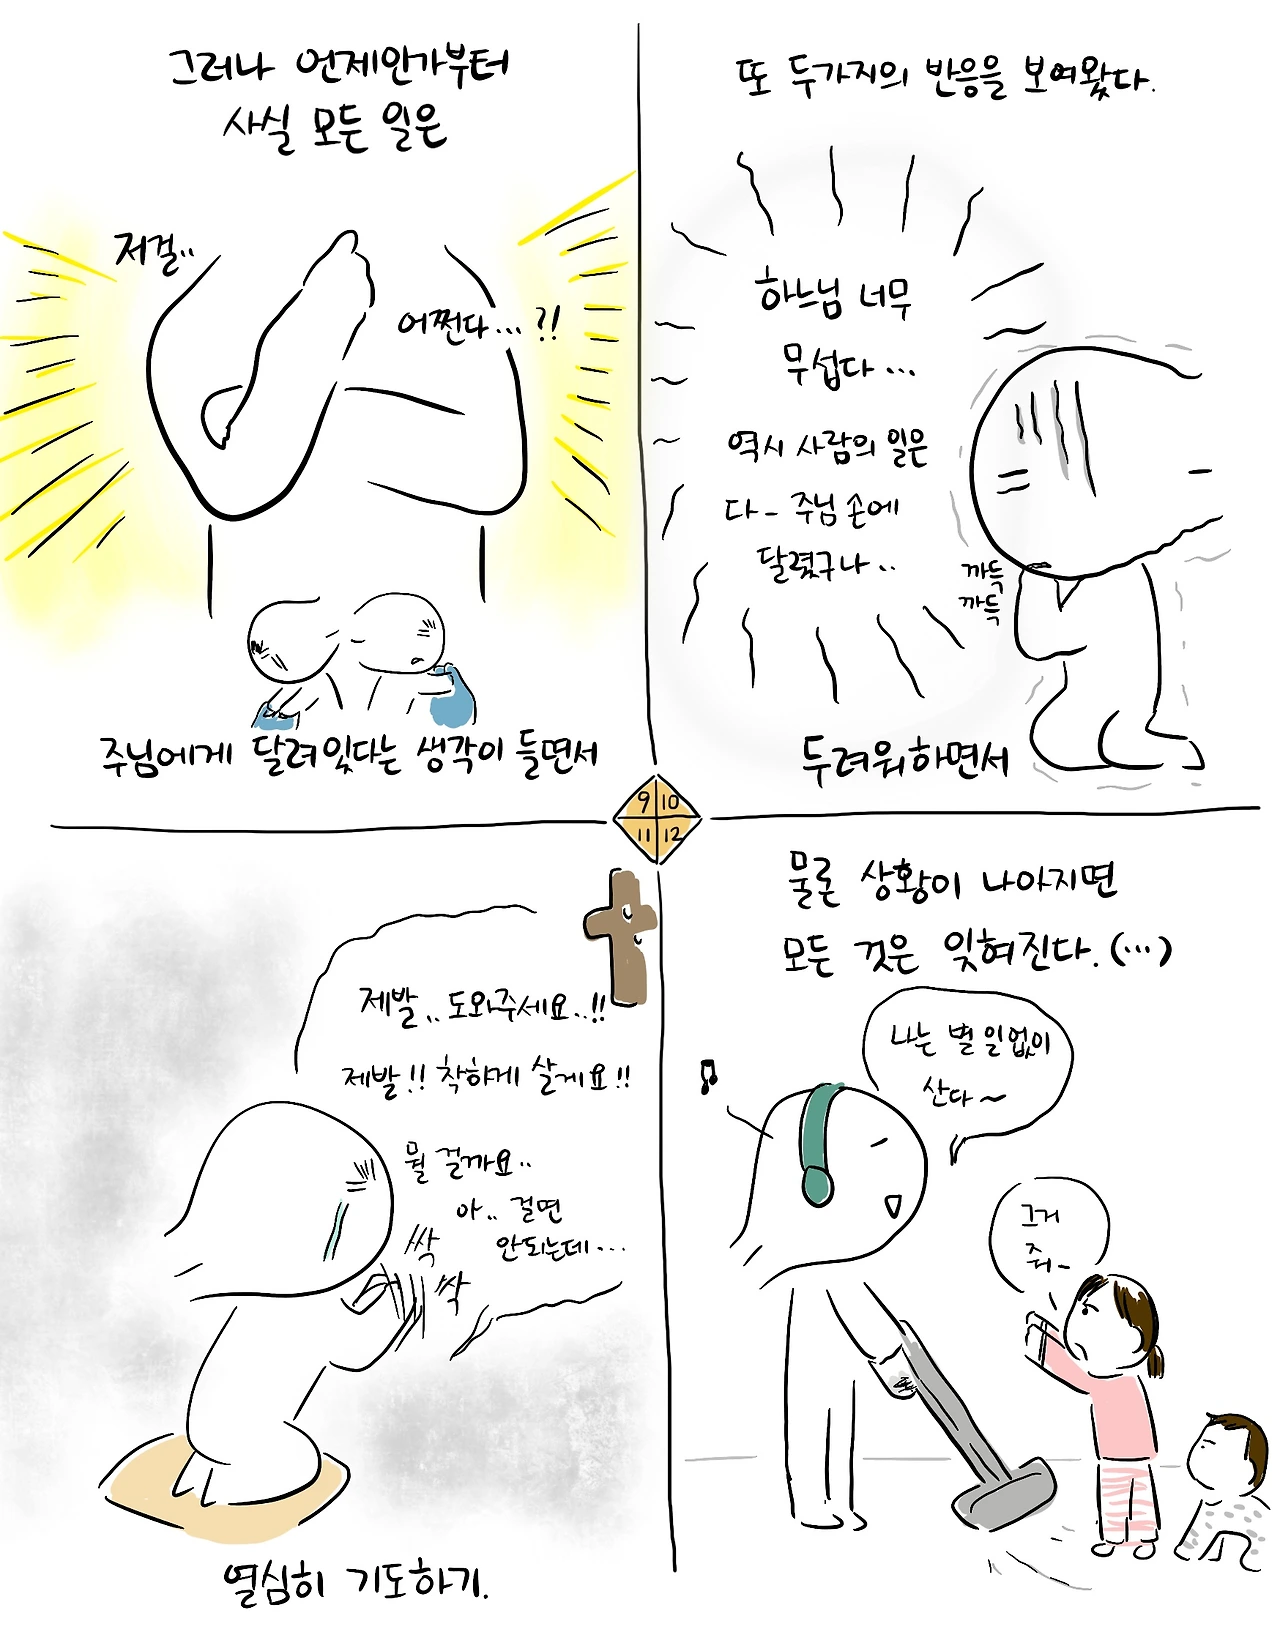 그러나 언제인가부터
사실 모든 일은
저걸..
어쩐다...?!
주님에게 달려있다는 생각이 들면서
또 두가지의 반응을 보여왔다.
하느님 너무
무섭다...
역시 사람의 일은
다- 주님 손에
달렸구나..
까득
까득
두려워하면서
9 10
11 12
제발.. 도와주세요..!!
제발!! 착하게 살게요!!
뭘 걸까요..
아.. 걸면
안되는데...
싹
싹
열심히 기도하기.
물론 상황이 나아지면
모든 것은 잊혀진다.(...)
나는 별 일없이
산다~
그거
줘-